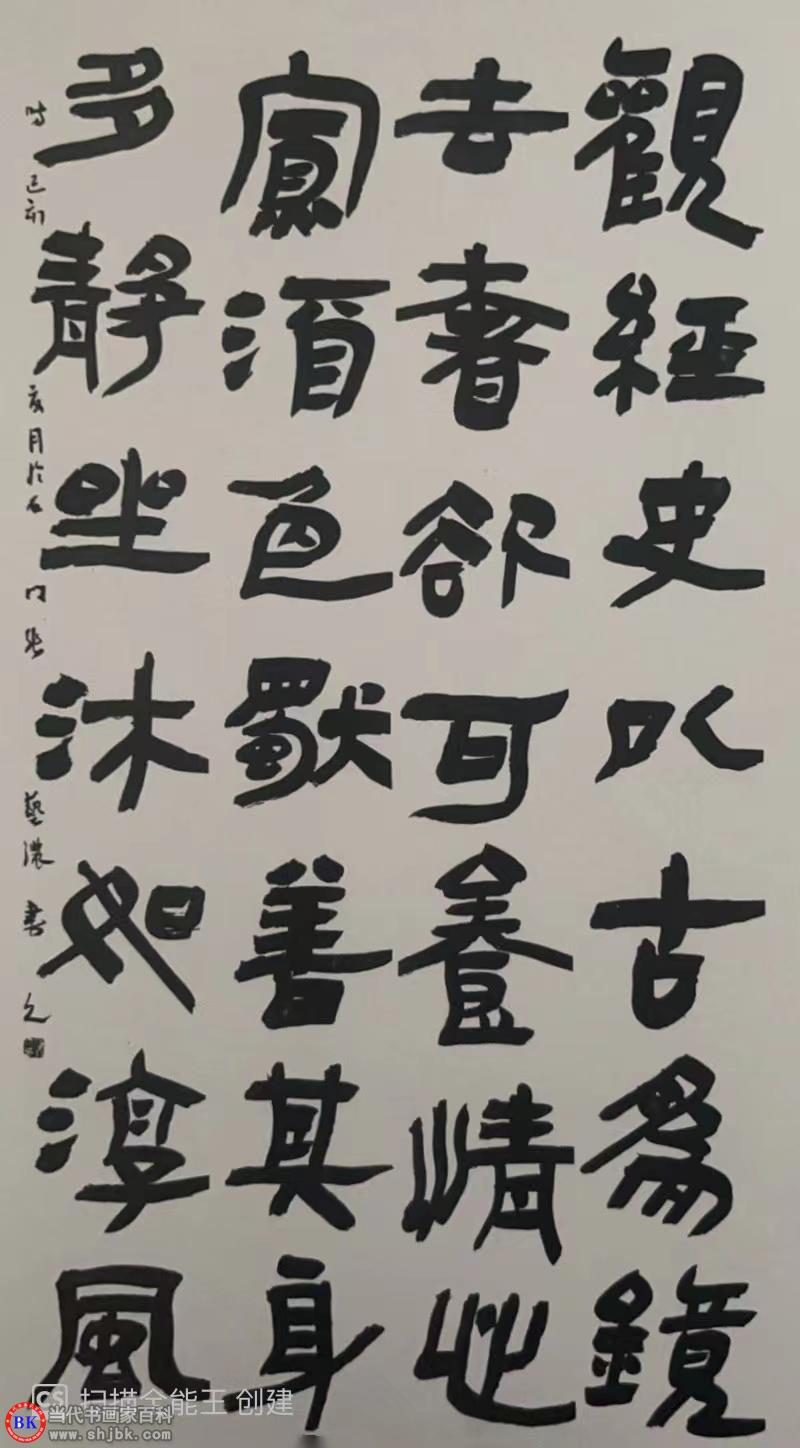 觀經史以古爲鏡
去奢欲可養情心
寡酒色獸善其身
多靜坐沐如淳風
時己亥夏月於石門張藝濃書之
CS 扫描全能王 创建
BK 当代书画家百科
www.shjbk.com